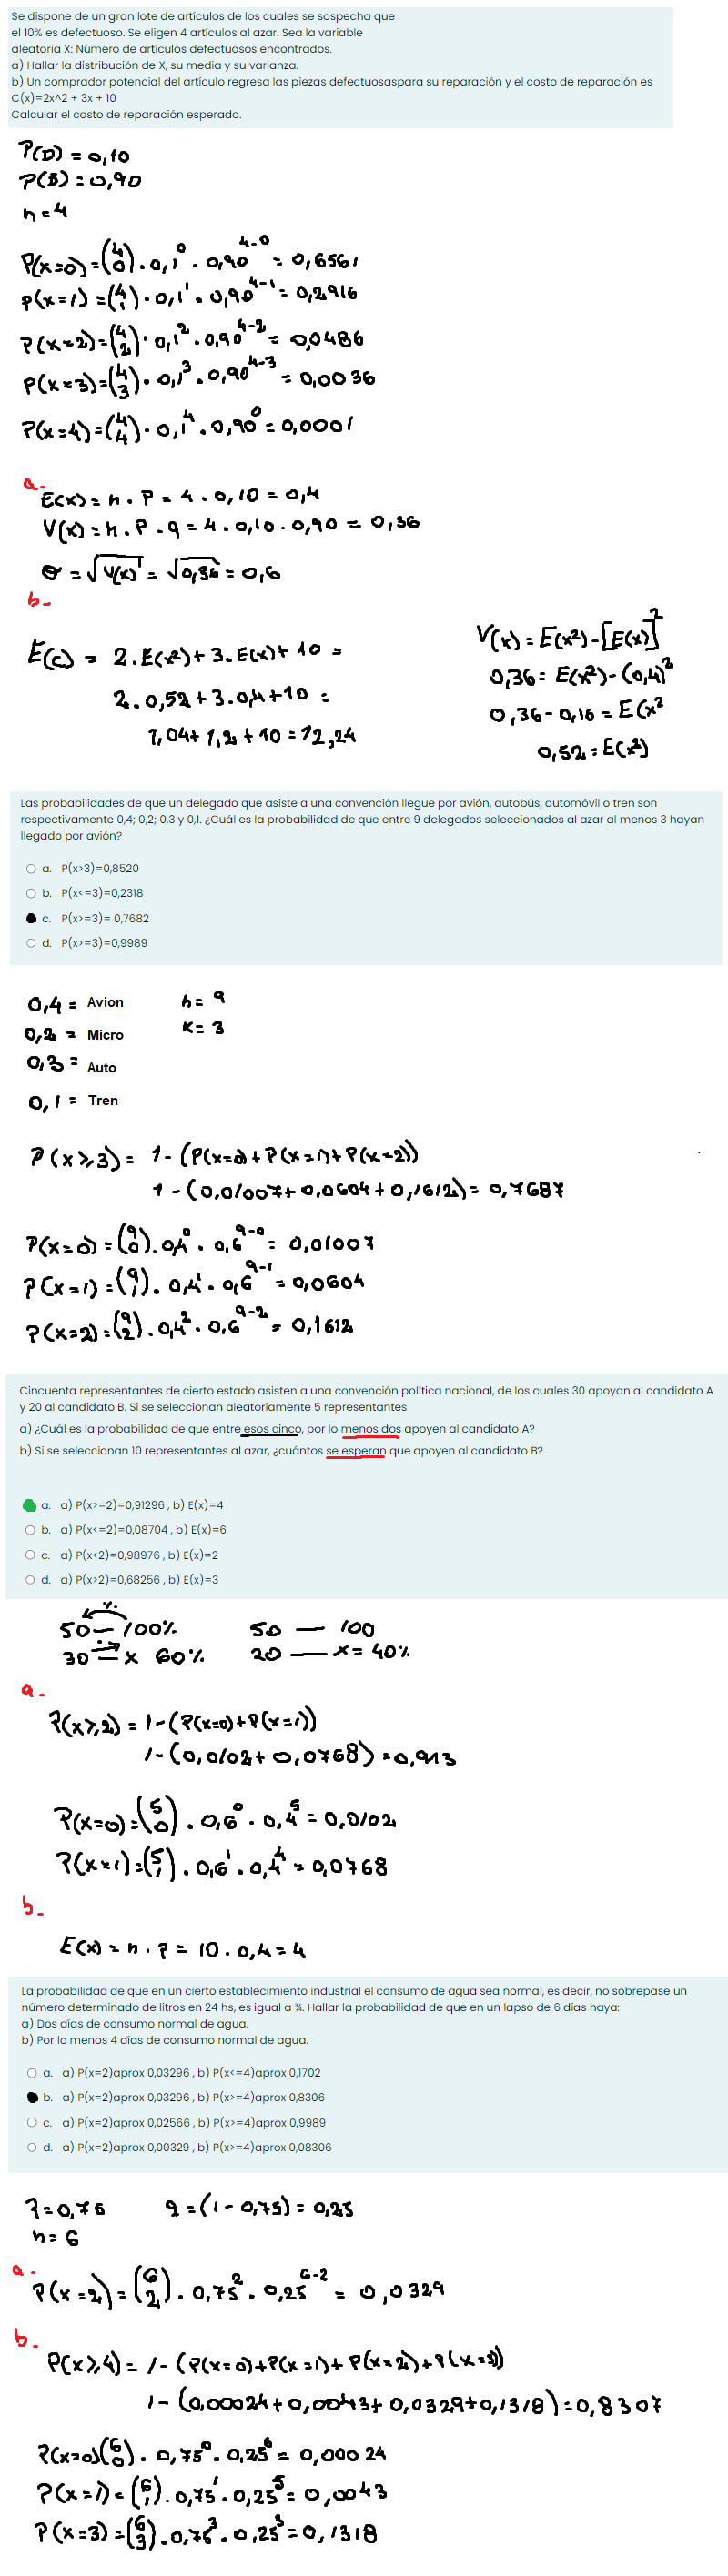 Se dispone de un gran lote de artículos de los cuales se sospecha que
el 10% es defectuoso. Se eligen 4 artículos al azar. Sea la variable
aleatoria X: Número de artículos defectuosos encontrados.
a) Hallar la distribución de X, su media y su varianza.
b) Un comprador potencial del artículo regresa las piezas defectuosaspara su reparación y el costo de reparación es
C(x)=2x^2 + 3x + 10
Calcular el costo de reparación esperado.
P(D) = 0,10
P(D̄) = 0,90
n = 4
P(x=0) = (4 0) . 0,1^0 . 0,90^4-0 = 0,6561
P(x=1) = (4 1) . 0,1^1 . 0,90^4-1 = 0,2916
P(x=2) = (4 2) . 0,1^2 . 0,90^4-2 = 0,0486
P(x=3) = (4 3) . 0,1^3 . 0,90^4-3 = 0,0036
P(x=4) = (4 4) . 0,1^4 . 0,90^0 = 0,0001
a-
E(x) = n . P = 4 . 0,10 = 0,4
V(x) = n . P . q = 4 . 0,10 . 0,90 = 0,36
σ = √V(x) = √0,36 = 0,6
b-
E(c) = 2.E(x²) + 3.E(x) + 10 =
2.0,52 + 3.0,4 + 10 =
1,04 + 1,2 + 10 = 12,24
V(x) = E(x²) - [E(x)]²
0,36 = E(x²) - (0,4)²
0,36 - 0,16 = E(x²
0,52 = E(x²)
Las probabilidades de que un delegado que asiste a una convención llegue por avión, autobús, automóvil o tren son
respectivamente 0,4; 0,2; 0,3 y 0,1. ¿Cuál es la probabilidad de que entre 9 delegados seleccionados al azar al menos 3 hayan
llegado por avión?
a. P(x>3)=0,8520
b. P(x<=3)=0,2318
c. P(x>=3)= 0,7682
d. P(x>=3)=0,9989
0,4 = Avion
0,2 = Micro
0,3 = Auto
0,1 = Tren
n = 9
K = 3
P(x≥3) = 1 - (P(x=0) + P(x=1) + P(x=2))
1 - (0,01007 + 0,0604 + 0,1612) = 0,7687
P(x=0) = (9 0) . 0,4^0 . 0,6^9-0 = 0,01007
P(x=1) = (9 1) . 0,4^1 . 0,6^9-1 = 0,0604
P(x=2) = (9 2) . 0,4^2 . 0,6^9-2 = 0,1612
Cincuenta representantes de cierto estado asisten a una convención política nacional, de los cuales 30 apoyan al candidato A
y 20 al candidato B. Si se seleccionan aleatoriamente 5 representantes
a) ¿Cuál es la probabilidad de que entre esos cinco, por lo menos dos apoyen al candidato A?
b) Si se seleccionan 10 representantes al azar, ¿cuántos se esperan que apoyen al candidato B?
a. a) P(x>=2)=0,91296 , b) E(x)=4
b. a) P(x<=2)=0,08704 , b) E(x)=6
c. a) P(x<2)=0,98976 , b) E(x)=2
d. a) P(x>2)=0,68256 , b) E(x)=3
50 — 100%
30 — x 60%
50 — 100
20 — x = 40%
a-
P(x≥2) = 1 - (P(x=0) + P(x=1))
1 - (0,0102 + 0,0768) = 0,913
P(x=0) = (5 0) . 0,6^0 . 0,4^5 = 0,0102
P(x=1) = (5 1) . 0,6^1 . 0,4^4 = 0,0768
b-
E(x) = n . p = 10 . 0,4 = 4
La probabilidad de que en un cierto establecimiento industrial el consumo de agua sea normal, es decir, no sobrepase un
número determinado de litros en 24 hs, es igual a ¾. Hallar la probabilidad de que en un lapso de 6 días haya:
a) Dos días de consumo normal de agua.
b) Por lo menos 4 días de consumo normal de agua.
a. a) P(x=2)aprox 0,03296 , b) P(x<=4)aprox 0,1702
b. a) P(x=2)aprox 0,03296 , b) P(x>=4)aprox 0,8306
c. a) P(x=2)aprox 0,02566 , b) P(x>=4)aprox 0,9989
d. a) P(x=2)aprox 0,00329 , b) P(x>=4)aprox 0,08306
P = 0,75 q = (1 - 0,75) = 0,25
n = 6
a-
P(x=2) = (6 2) . 0,75^2 . 0,25^6-2 = 0,0329
b-
P(x≥4) = 1 - (P(x=0) + P(x=1) + P(x=2) + P(x=3))
1 - (0,00024 + 0,0043 + 0,0329 + 0,1318) = 0,8307
P(x=0) (6 0) . 0,75^0 . 0,25^6 = 0,00024
P(x=1) = (6 1) . 0,75^1 . 0,25^5 = 0,0043
P(x=3) = (6 3) . 0,75^3 . 0,25^3 = 0,1318